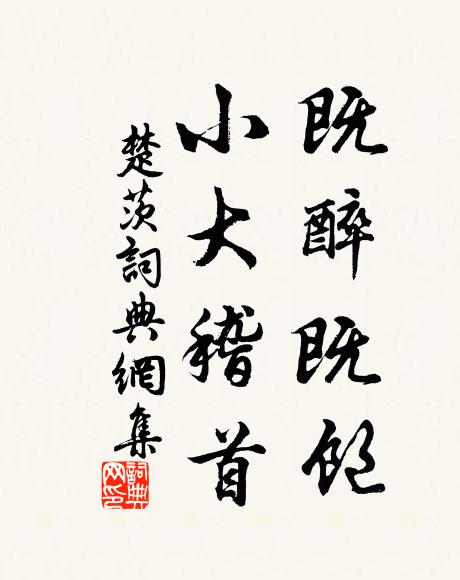 既醉既飽
小大稽首
楚茨詞典網集
詞典网印